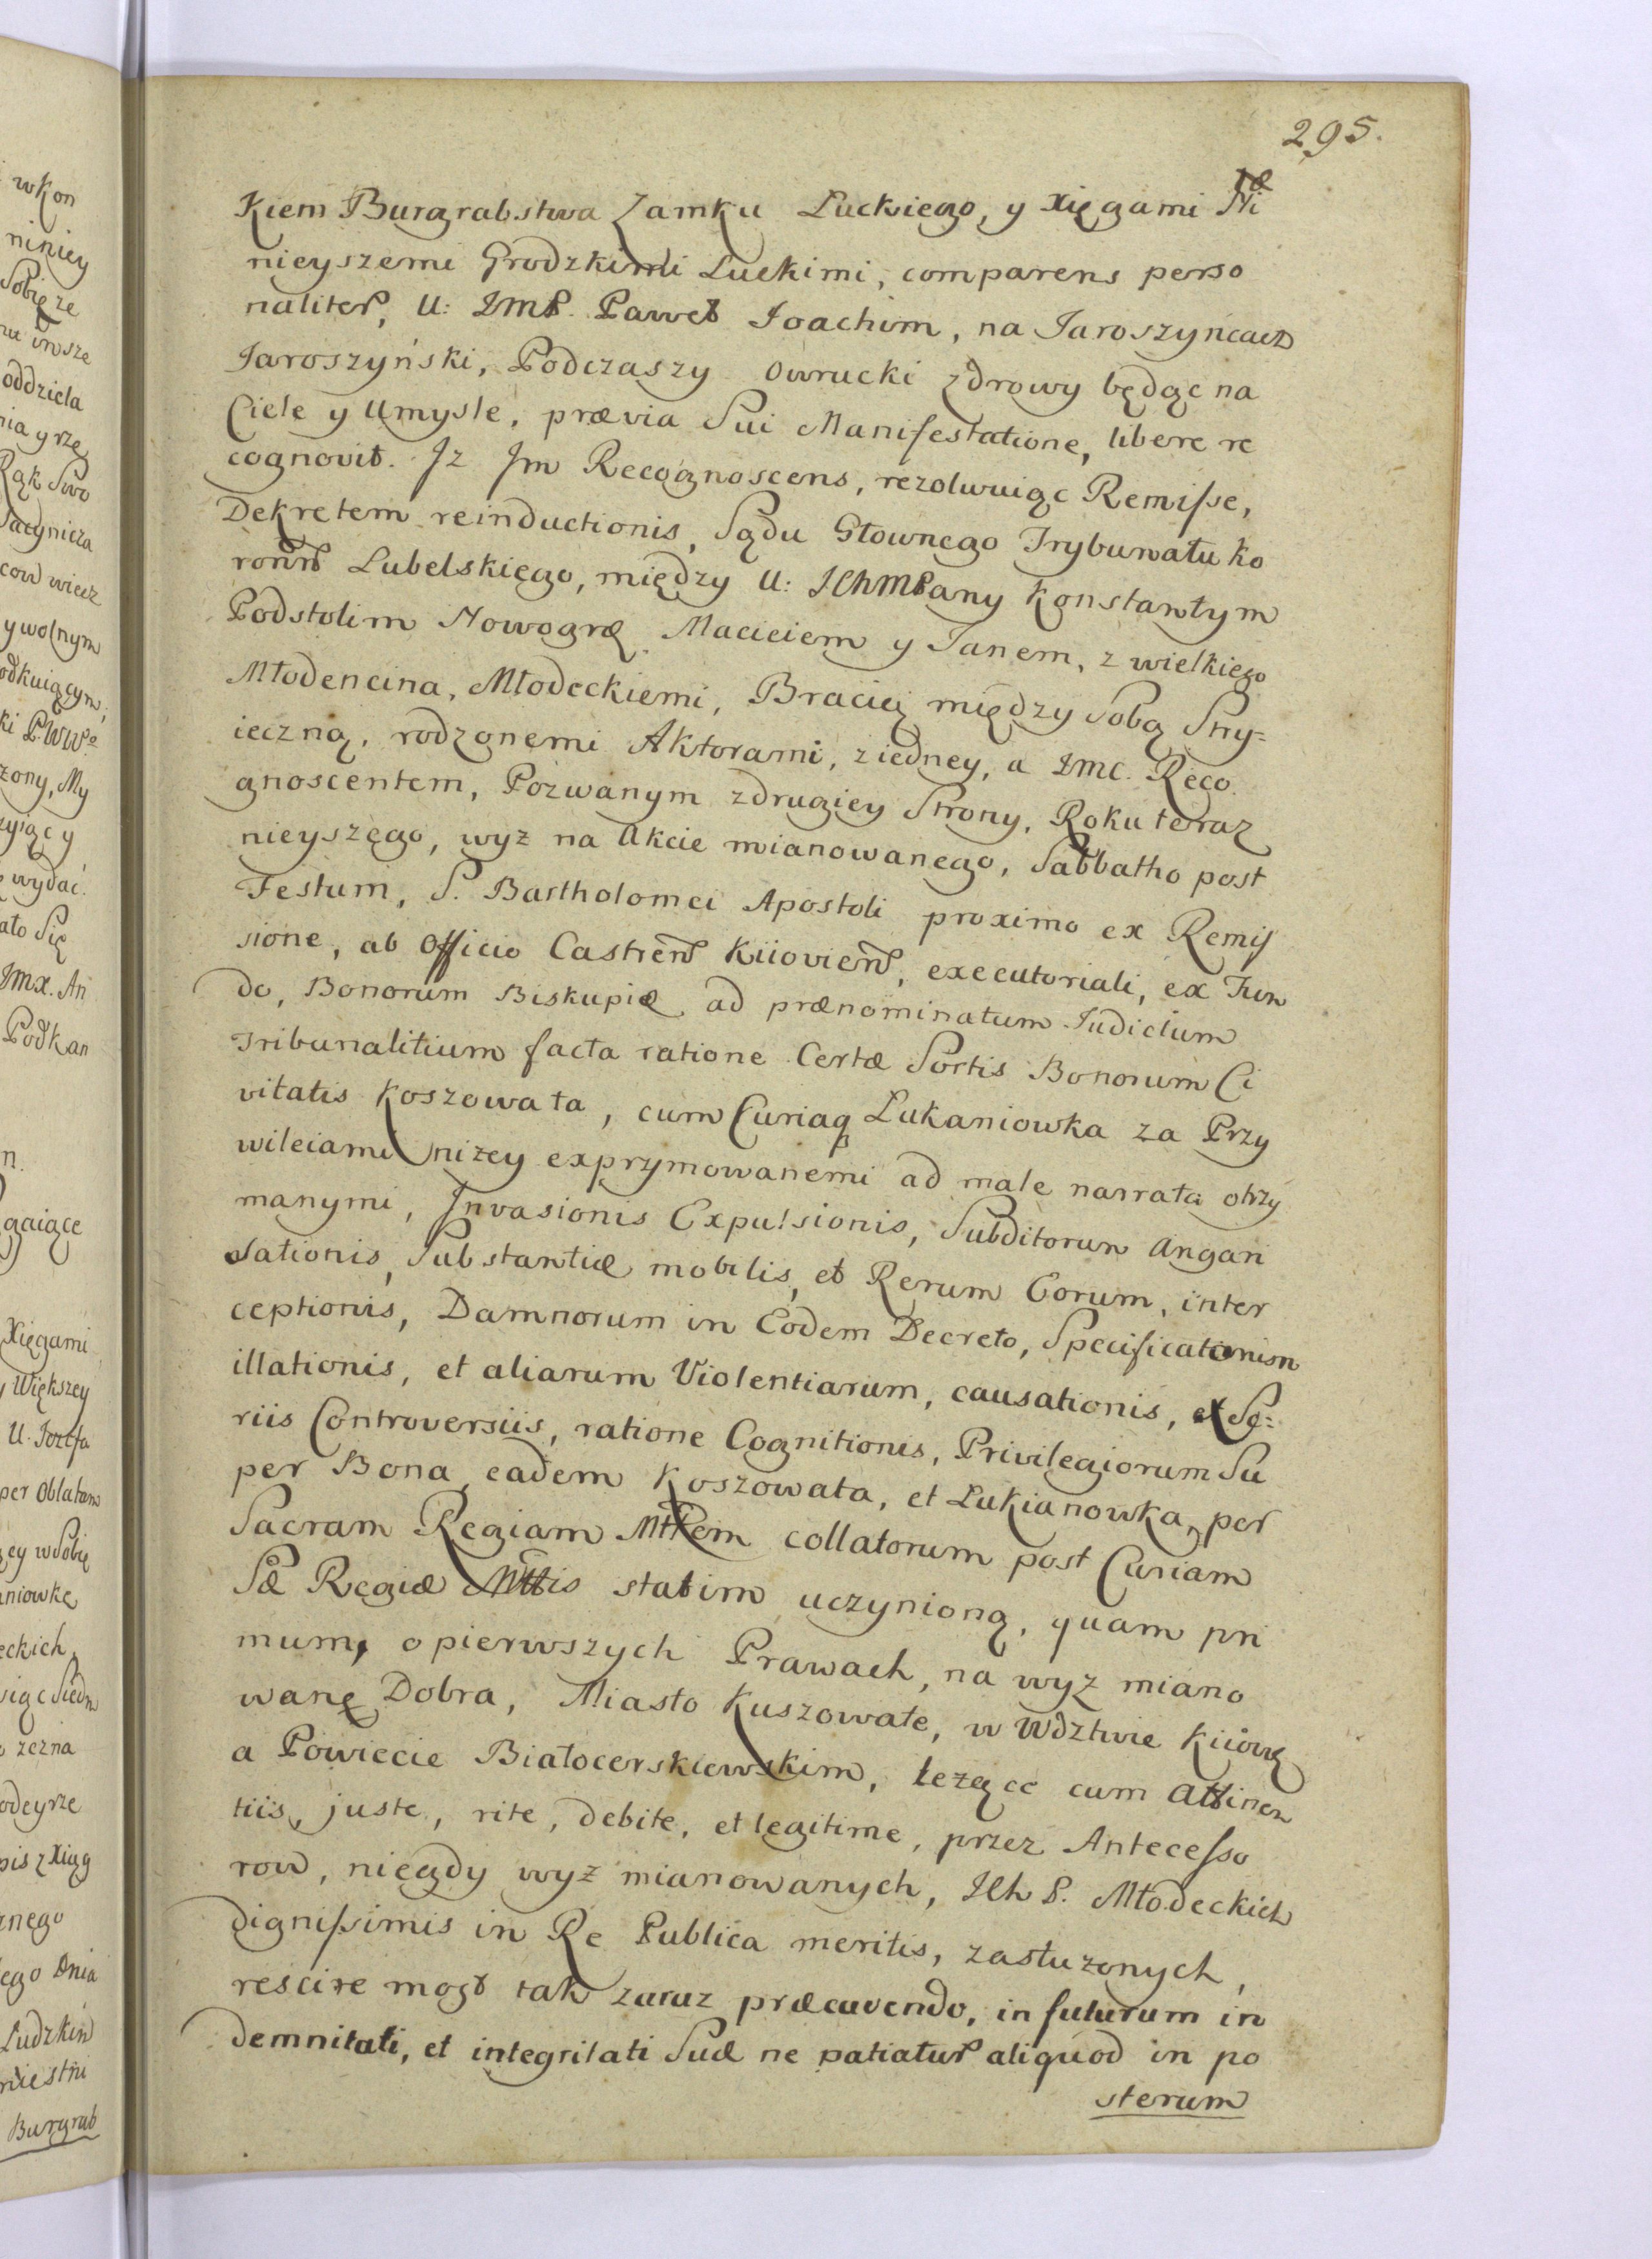 295.
Kiem Burgrabstwa Zamku Luckiego, y Xięgami Ni
nieyszemi Grodzkiemi Luckimi, comparens perso
naliter, U: JMP. Paweł Joachim, na Jaroszyńcach
Jaroszyński, Podczaszy Owrucki zdrowy będąc na
Ciele y Umysle, prævia Sui Manifestatione, libere re
cognovit. Jz Jm Recognoscens, rezolwuiąc Remisse,
Dekretem reinductionis, Sądu Głownego Trybunału ko
ronn Lubelskięgo, między U: JchMPany Konstantym
Podstolim Nowogrę. Macieiem y Janem, z wielkiego
Młodencina, Młodeckiemi, Bracią między Sobą Stry-
ieczną, rodzonemi Aktorami, z iedney, a JMC. Reco.
gnoscentem, Pozwanym zdrugiey Strony, Roku teraz
nieyszego, wyż na Akcie mianowanego, Sabbatho post
Festum, S. Bartholomei Apostoli proximo ex Remis
sione, ab Officio Castren Kiiovien, executoriali, ex Fun
do, Bonorum Biskupię ad prænominatum Judicium
Tribunalitium facta ratione Certæ Sortis Bonorum Ci
vitatis Koszowata, cum Curiaq Lukaniowka za Przy
wileiami niżey exprymowanemi ad male narrata otrzy
manymi, Invasionis Expulsionis, Subditorum Angari
sationis, Substantiæ mobilis, et Rerum Eorum, inter
ceptionis, Damnorum in Eodem Decreto, Specificationism
illationis, et aliarum Violentiarum, causationis, et Se:
riis Controversiis, ratione Cognitionis, Privilegiorum Su
per Bona eadem Koszowata, et Lukianowka, per
Sacram Regiam MtRem collatorum post Curiam
Sæ Regiæ Mttis statim uczynioną, quam pri
mum, o pierwszych Prawach, na wyż miano
wanę Dobra, Miasto Kuszowate, w Wdztwie Kiiowę
a Powiecie Białocerskiewskim, leżące cum Attinen
tiis, juste, rite, debite, et legitime, przez Antecesso
row, niegdy wyż mianowanych, Jch P. Młodeckich
dignissimis in Re Publica meritis, zasłużonych,
rescire mogł tak zaraz præcavendo, in futurum in
demnitati, et integritati Suæ ne patiatur aliquod in po
sterum